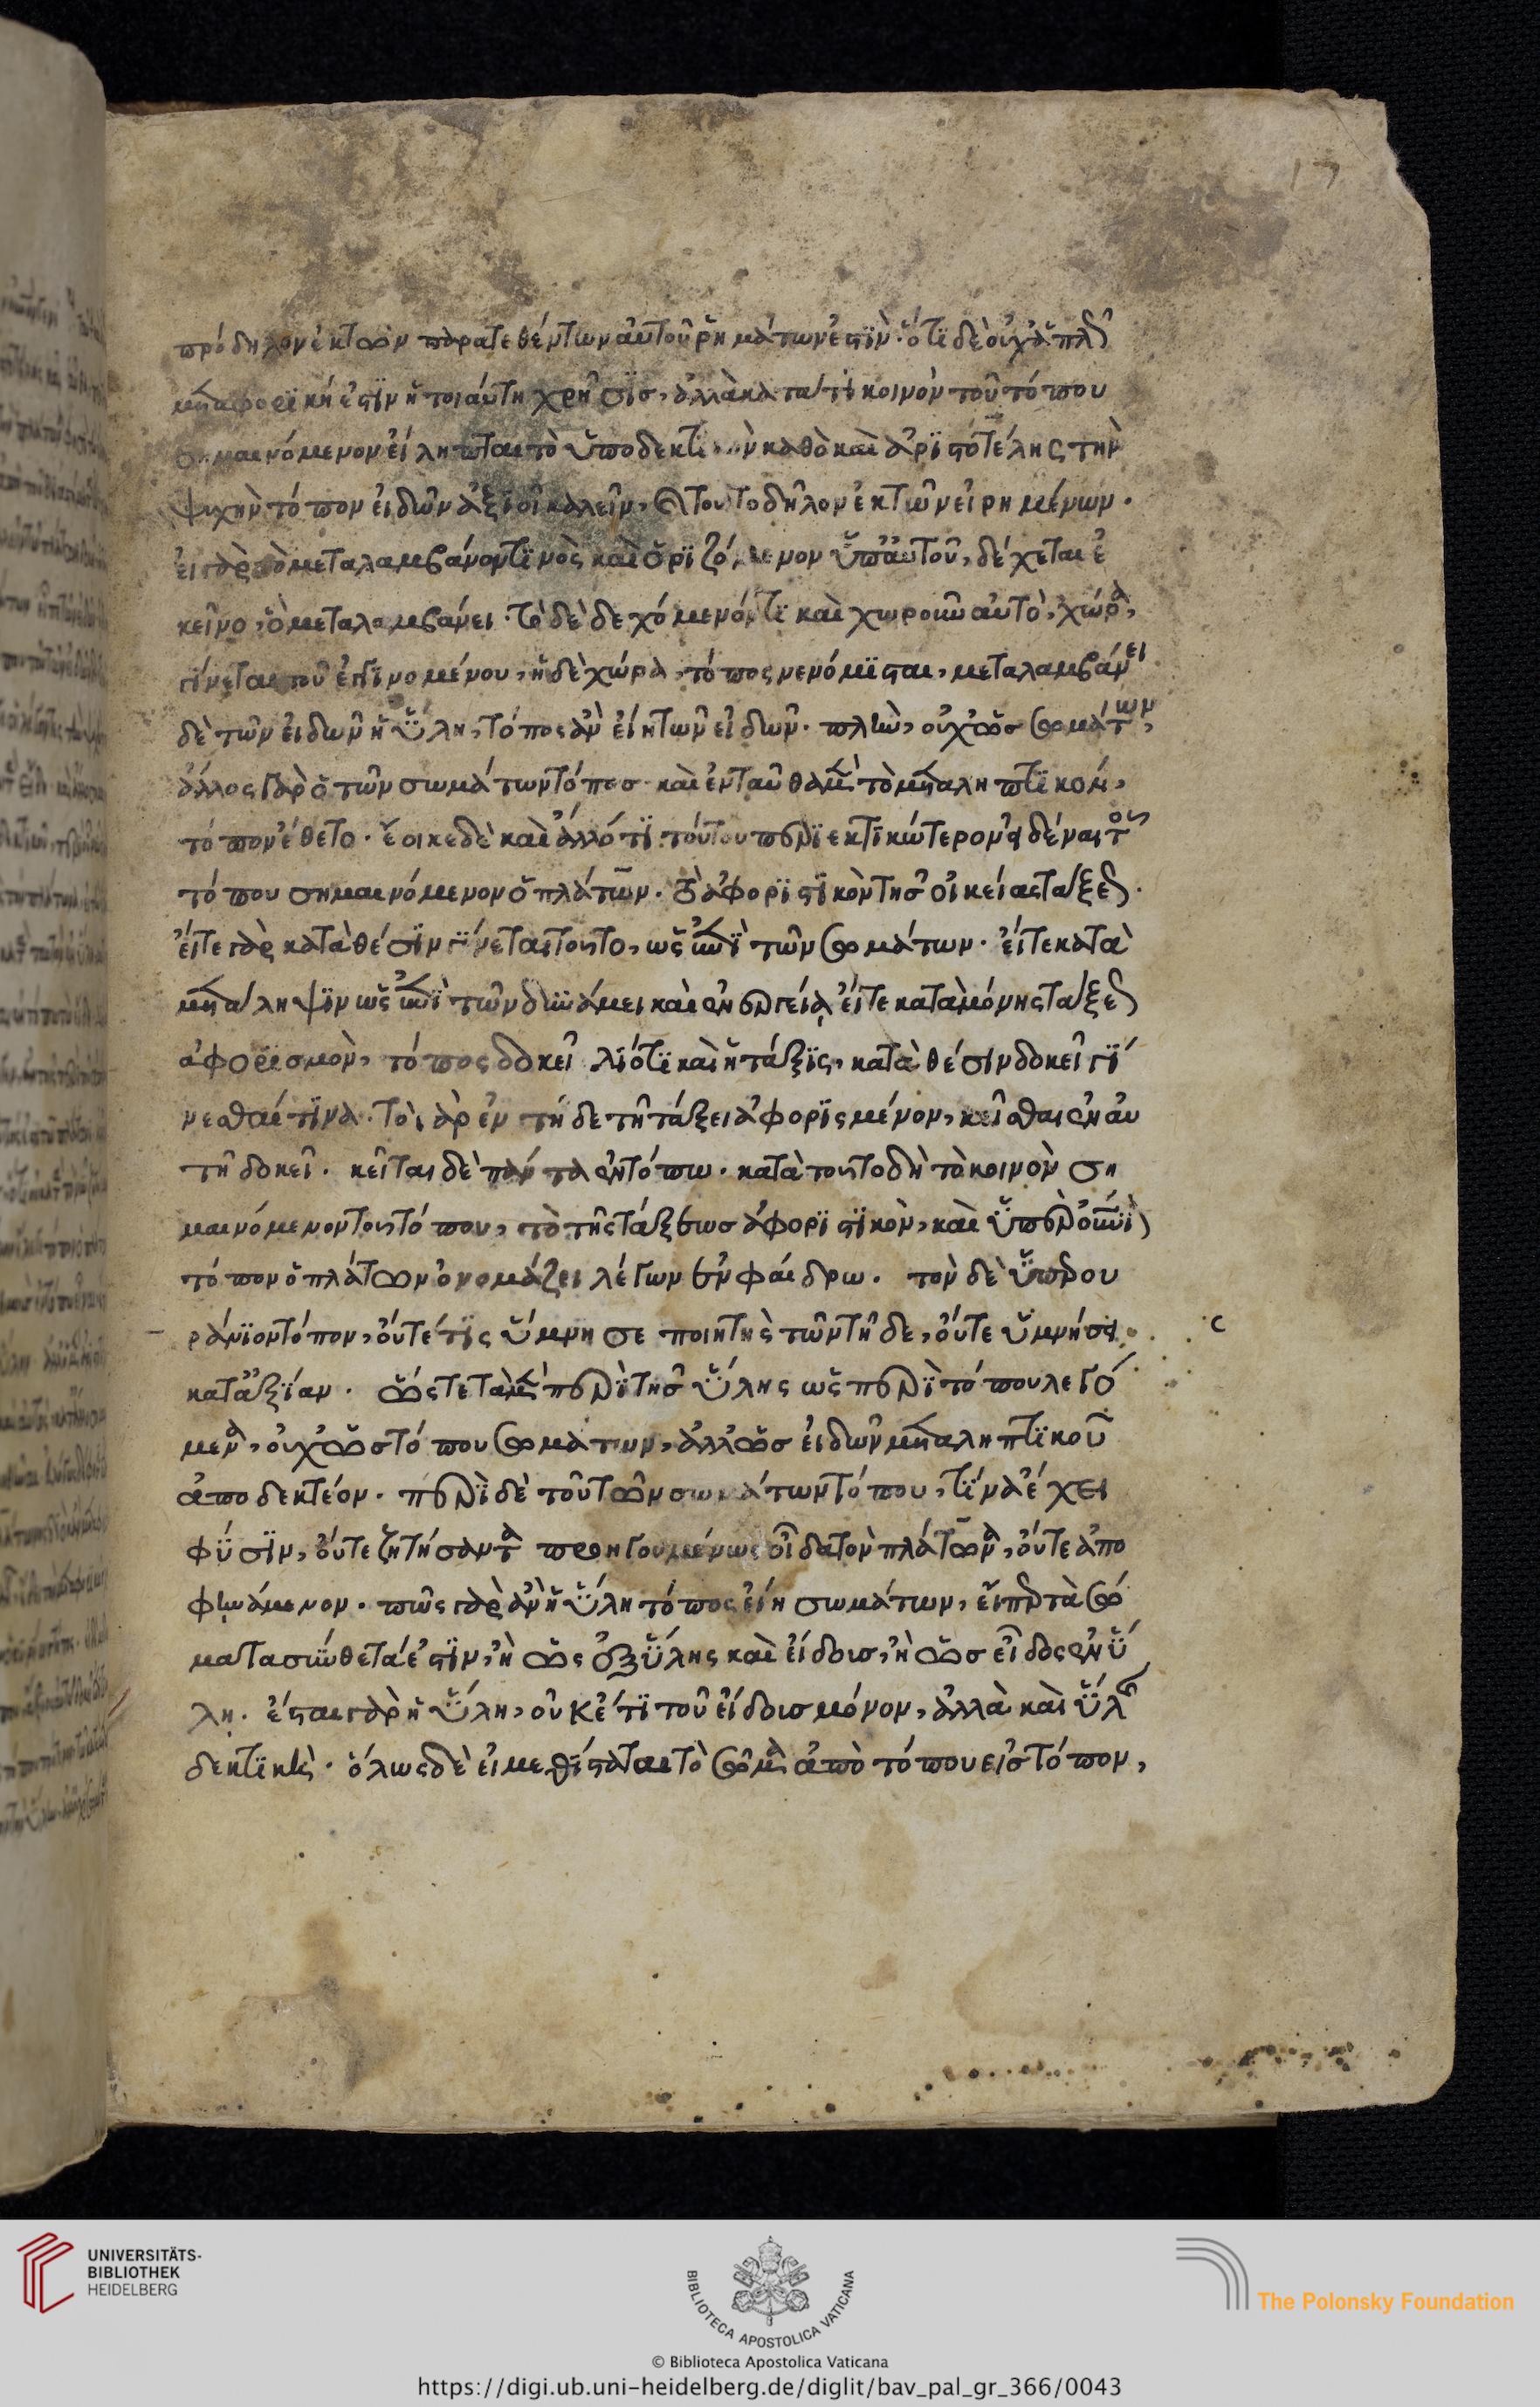 17
πρόδηλον ἐκ τῶν παρατεθέντων αὐτοῦ ῥημάτων ἐστὶν· ὅτι δὲ οὐχ ἁπλῶς
μεταφορικὴ ἐστὶν ἡ τοιαύτη χρῆσις, ἀλλὰ κατά τι κοινὸν τοῦ τόπου
σημαινόμενον εἴληπται τὸ ὑποδεκτικὸν καθὸ καὶ ἀριστοτέλης τὴν
ψυχὴν τόπον εἰδῶν ἀξιοῖ καλεῖν, καὶ τοῦτο δῆλον ἐκ τῶν εἰρημένων.
εἰ γὰρ τὸ μεταλαμβάνον τινὸς καὶ ὁριζόμενον ὑπ' αὐτοῦ, δέχεται ἐ
κεῖνο, ὃ μεταλαμβάνει· τὸ δὲ δεχόμενόν τι καὶ χωροῦν αὐτὸ, χώρα,
γίνεται τοῦ ἐγγινομένου, ἡ δὲ χώρα, τόπος νενόμισται, μεταλαμβάνει
δὲ τῶν εἰδῶν ἡ ὕλη, τόπος ἂν εἴη τῶν εἰδῶν. πλὴν, οὐχ ὡς σωμάτων,
ἄλλος γὰρ ὁ τῶν σωμάτων τόπος καὶ ἐνταῦθα μὲν τὸ μεταληπτικόν,
τόπον ἔθετο. ἔοικε δὲ καὶ ἄλλό τι τούτου περιεκτικώτερον εἰδέναι τὸ
τόπου σημαινόμενον ὁ πλάτων. τὸ ἀφοριστικὸν τῆς οἰκείας τάξεως.
εἴτε γὰρ κατὰ θέσιν γίνεται τοῦτο, ὡς ἐπὶ τῶν σωμάτων. εἴτε κατὰ
μετάληψιν ὡς ἐπὶ τῶν δυνάμει καὶ ἐνεργείᾳ εἴτε κατὰ μόνης τάξεως
ἀφορισμὸν, τόπος δοκεῖ διότι καὶ ἡ τάξις, κατὰ θέσιν δοκεῖ γί
νεσθαί τινα. τὸ γὰρ ἐν τῇδε τῇ τάξει ἀφορισμένον, κεῖσθαι ἐν αὐ
τῇ δοκεῖ. κεῖται δὲ πάντα ἐν τόπω. κατὰ τοῦτο δὴ τὸ κοινὸν ση
μαινόμενον τοῦ τόπου, τὸ τῆς τάξεως ἀφοριστικὸν, καὶ ὑπερουράνιον
τόπον ὁ πλάτων ὀνομάζει λέγων ἐν φαίδρω. τὸν δὲ ὑπερου
ράνιον τόπον, οὔτέ τις ὕμνησε ποιητὴς τῶν τῇδε, οὔτε ὑμνήσει
κατ' ἀξίαν. ὥστε τὰ μὲν περὶ τῆς ὕλης ὡς περὶ τόπου λεγό
μενα, οὐχ ὡς τόπου σωμάτων, ἀλλ' ὡς εἰδῶν μεταληπτικοῦ
ἀποδεκτέον. περὶ δὲ τοῦ τῶν σωμάτων τόπου, τίνα ἔχει
φύσιν, οὔτε ζητήσαντα προηγουμένως οἶδα τὸν πλάτωνα, οὔτε ἀπο
φηνάμενον. πῶς γὰρ ἂν ἡ ὕλη τόπος εἴη σωμάτων, εἴπερ τὰ σώ
ματα σύνθετά ἐστιν, ἢ ὡς ἐξ ὕλης καὶ εἴδους, ἢ ὡς εἶδος ἐν ὕ
λη. ἔσται γὰρ ἡ ὕλη, οὐκ ἔτι τοῦ εἴδους μόνον, ἀλλὰ καὶ ὕλης
δεκτικὴ. ὅλως δὲ εἰ μεθίσταται τὸ σῶμα ἀπὸ τόπου εἰς τόπον,
UNIVERSITÄTS-
BIBLIOTHEK
HEIDELBERG
BIBLIOTECA APOSTOLICA VATICANA
The Polonsky Foundation
© Biblioteca Apostolica Vaticana
https://digi.ub.uni-heidelberg.de/diglit/bav_pal_gr_366/0043